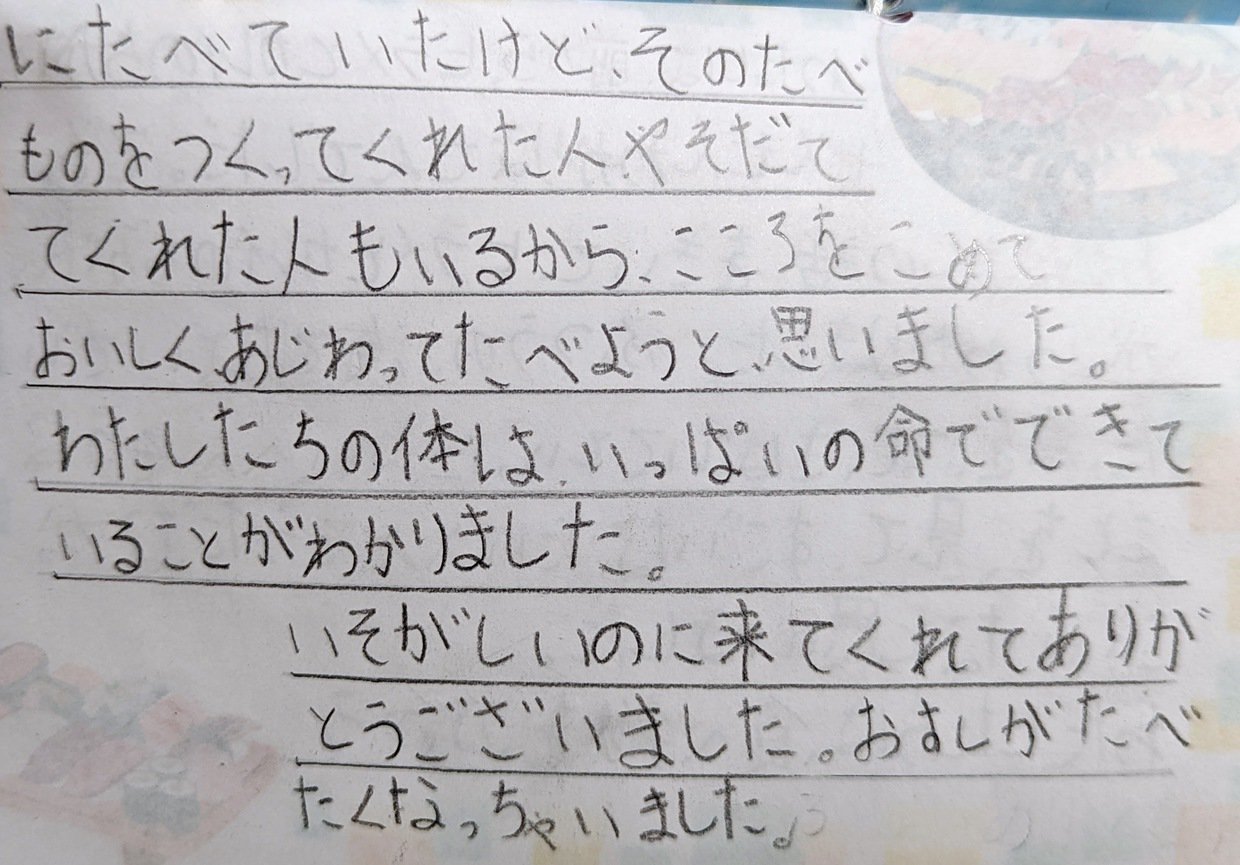 にたべていたけど、そのたべ
ものをつくってくれた人やそだて
てくれた人もいるから、こころをこめて
おいしく、あじわってたべようと、思いました。
わたしたちの体は、いっぱいの命でできて
いることがわかりました。
いそがしいのに来てくれてありが
とうございました。おすしがたべ
たくなっちゃいました。